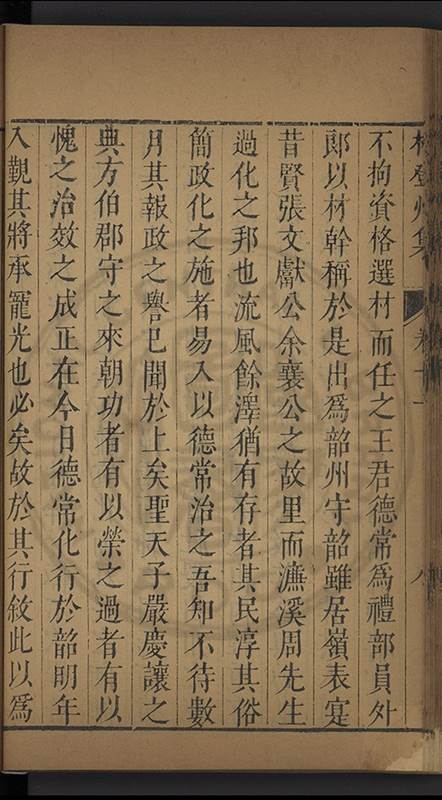 林登州集 卷十一 八
不拘資格選材而任之王君德常爲禮部員外
郎以材幹稱於是出爲韶州守韶雖居嶺表寔
昔賢張文獻公余襄公之故里而濂溪周先生
過化之邦也流風餘澤猶有存者其民淳其俗
簡政化之施者易入以德常治之吾知不待數
月其報政之譽已聞於上矣聖天子嚴慶讓之
典方伯郡守之來朝功者有以榮之過者有以
愧之治效之成正在今日德常化行於韶明年
入覲其將承寵光也必矣故於其行敘此以爲